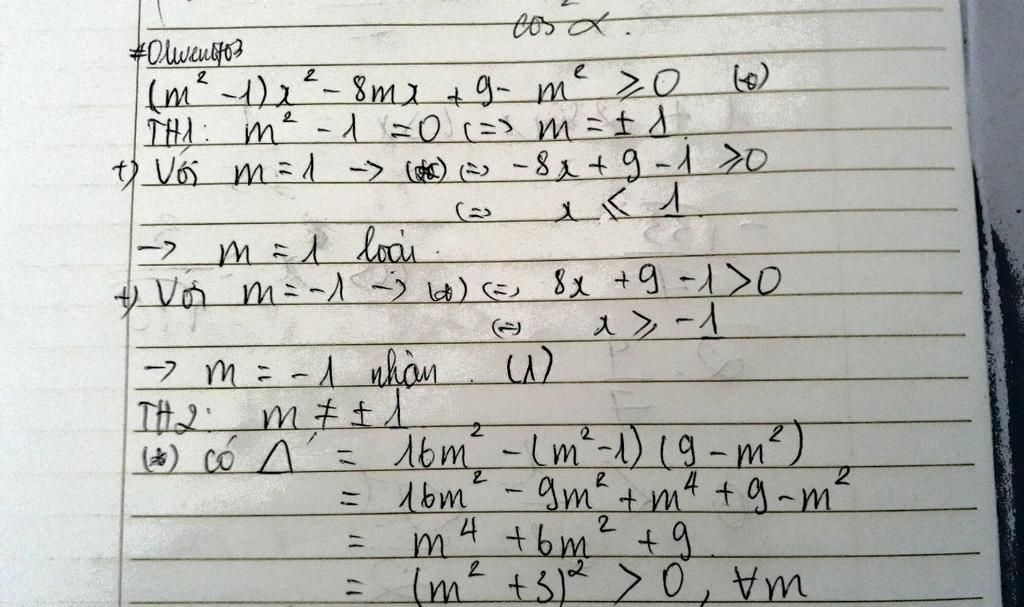 cos² α.
(m² - 1)x² - 8mx + 9 - m² ≥ 0 (*)
TH1: m² - 1 = 0 (=> m = ± 1
+) Với m = 1 -> (*) (=> -8x + 9 - 1 ≥ 0
(=> x ≤ 1
-> m = 1 loại.
+) Với m = -1 -> (*) (=> 8x + 9 - 1 > 0
(=> x ≥ -1
-> m = -1 nhận. (1)
TH2: m ≠ ± 1
(*) có Δ' = 16m² - (m² - 1)(9 - m²)
= 16m² - 9m² + m⁴ + 9 - m²
= m⁴ + 6m² + 9
= (m² + 3)² > 0, ∀m